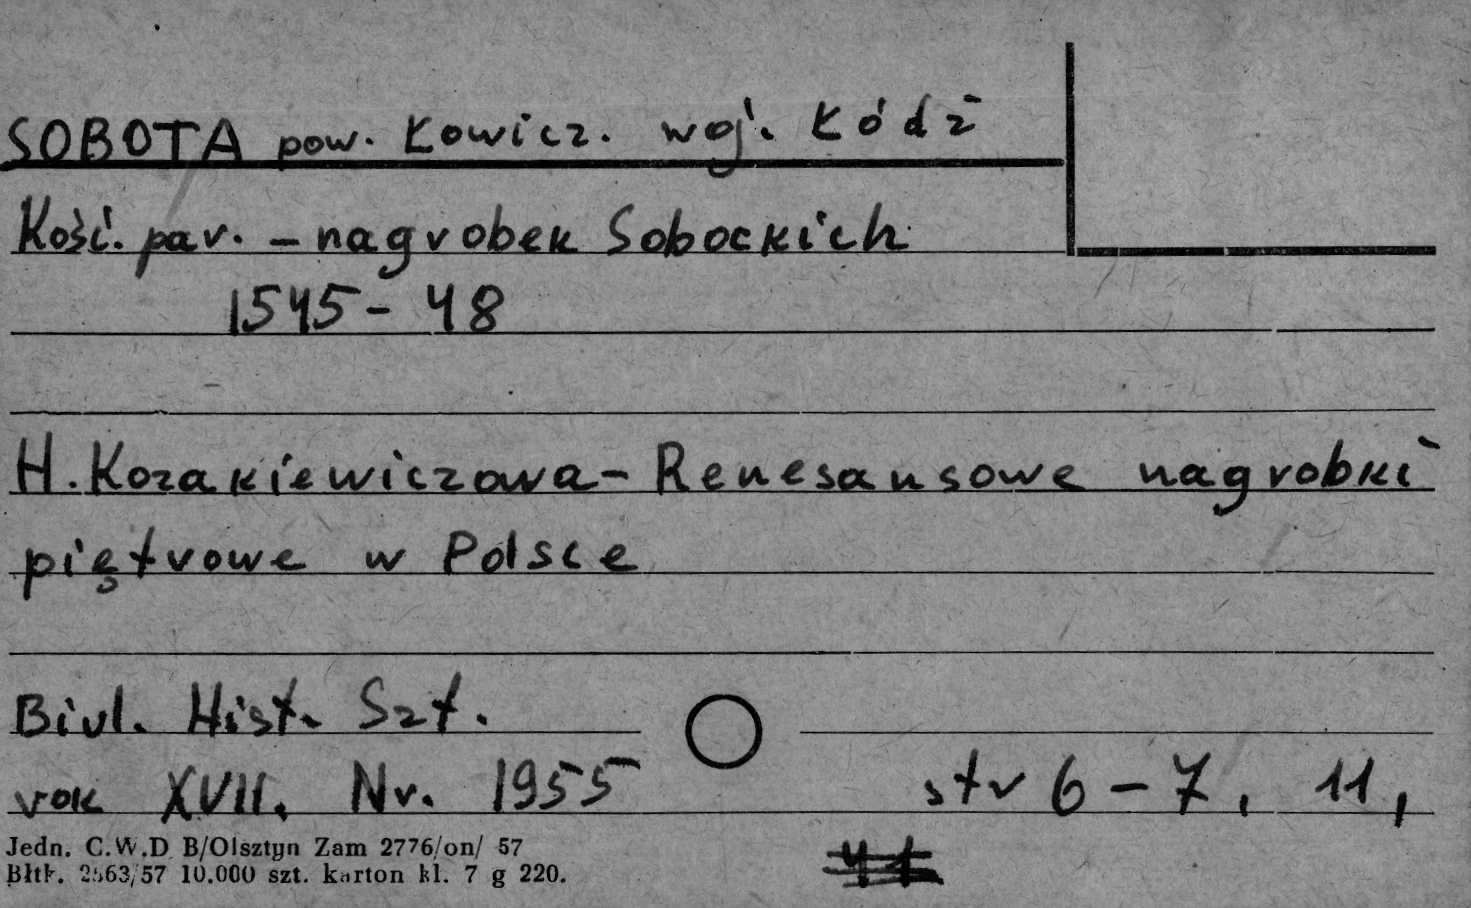 SOBOTA pow. Łowicz. woj. Łódź
Kość. par. – nagrobek Sobockich
1545 – 48
H. Kozakiewiczowa – Renesansowe nagrobki
piętrowe w Polsce
Biul. Hist. Szt.
rok XVII. Nr. 1955 str 6 – 7, 11,
Jedn. C.W.D B/Olsztyn Zam 2776/on/ 57
Błtk. 2563/57 10.000 szt. karton kl. 7 g 220.